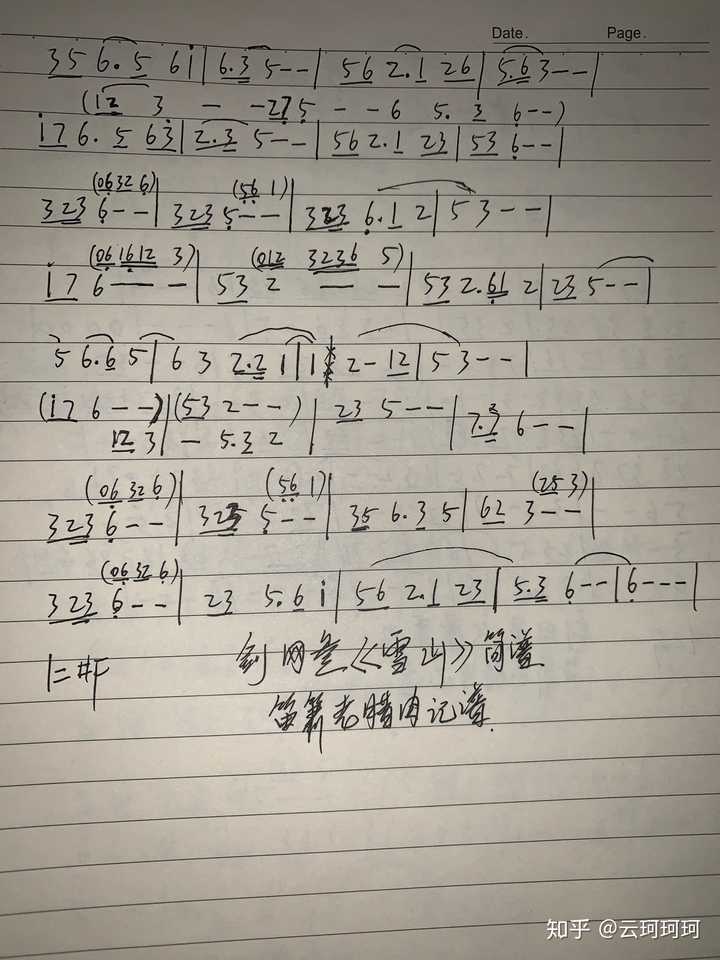 Date. Page.
35 6. 5 6 i | 6.3 5 - - | 56 2.1 26 | 5.6 3 - - |
(12 3 - - 275 - - 6 5. 3 6 - -)
i 7 6. 5 63 | 2.3 5 - - | 56 2.1 23 | 53 6 - - |
(06 32 6) (56 1)
323 6 - - | 323 5 - - | 323 6.1 2 | 5 3 - - |
(06 1612 3) (012 3236 5)
i 7 6 - - - | 53 2 - - | 53 2.61 2 | 23 5 - - |
5 6.6 5 | 6 3 2.2 1 | 1 | 2 - 12 | 5 3 - - |
(i 7 6 - -) | (53 2 - -) | 23 5 - - | 7.7 6 - - |
12 3 | - 5.3 2
(06 32 6) (56 1) (25 3)
323 6 - - | 323 5 - - | 35 6.3 5 | 62 3 - - |
(06 32 6)
323 6 - - | 23 5.6 i | 56 2.1 23 | 5.3 6 - - | 6 - - - |
1=#F 剑网叁《雪山》简谱
笛箫老腊肉记谱
知乎 @云珂珂珂